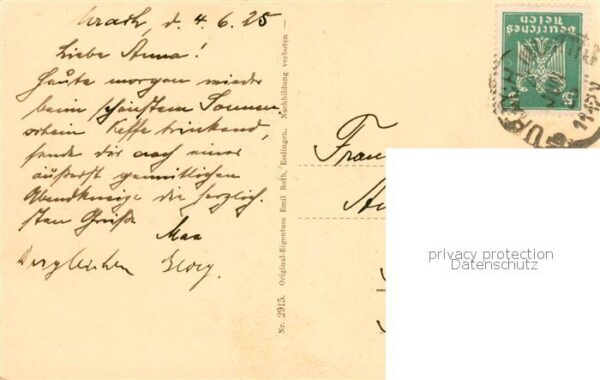 Urach, d. 4.6.25
Liebe Anna!
Heute morgen wieder
beim schönsten Sonnen
schein Kaffe trinkend,
sende dir nach einer
äußerst gemütlichen
Abendkneipe die herzlich-
sten Grüße
Max
Dergleichen Georg.
Nr. 2915. Original-Eigentum Emil Roth, Esslingen. Nachbildung verboten
Deutsches
Reich
5
URACH
Frau
privacy protection
Datenschutz